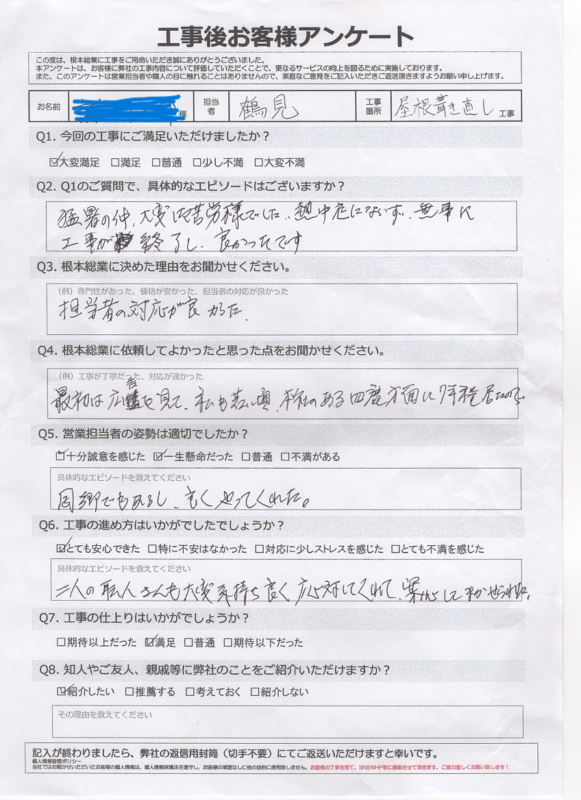 工事後お客様アンケート
この度は、根本総業に工事をご用命いただき誠にありがとうございました。
本アンケートは、お客様に弊社の工事内容について評価していただくことで、更なるサービスの向上を図るために実施しております。
また、このアンケートは営業担当者や職人の目に触れることはありませんので、素直なご意見をご記入いただきご返送頂きますようお願い申し上げます。
お名前 様 担当者 鶴見 工事箇所 屋根葺き直し 工事
Q1. 今回の工事にご満足いただけましたか？
☑大変満足 □満足 □普通 □少し不満 □大変不満
Q2. Q1のご質問で、具体的なエピソードはございますか？
猛暑の仲、大変ご苦労様でした、熱中症にならず、無事に
工事が終了し、良かったです
Q3. 根本総業に決めた理由をお聞かせください。
（例）専門性があった、価格が安かった、担当者の対応が良かった
担当者の対応が良かった
Q4. 根本総業に依頼してよかったと思った点をお聞かせください。
（例）工事が丁寧だった、対応が速かった
最初は広告を見て、私も若い頃、のある四麿方面に7年程居たので
Q5. 営業担当者の姿勢は適切でしたか？
☑十分誠意を感じた ☑一生懸命だった □普通 □不満がある
具体的なエピソードを教えてください
同郷でもあるし、良くやってくれた。
Q6. 工事の進め方はいかがでしたでしょうか？
☑とても安心できた □特に不安はなかった □対応に少しストレスを感じた □とても不満を感じた
具体的なエピソードを教えてください
二人の職人さんも大変気持ち良く応対してくれて、安心してまかせられた
Q7. 工事の仕上りはいかがでしょうか？
□期待以上だった ☑満足 □普通 □期待以下だった
Q8. 知人やご友人、親戚等に弊社のことをご紹介いただけますか？
☑紹介したい □推薦する □考えておく □紹介しない
その理由を教えてください
記入が終わりましたら、弊社の返信用封筒（切手不要）にてご返送いただけますと幸いです。
個人情報管理ポリシー